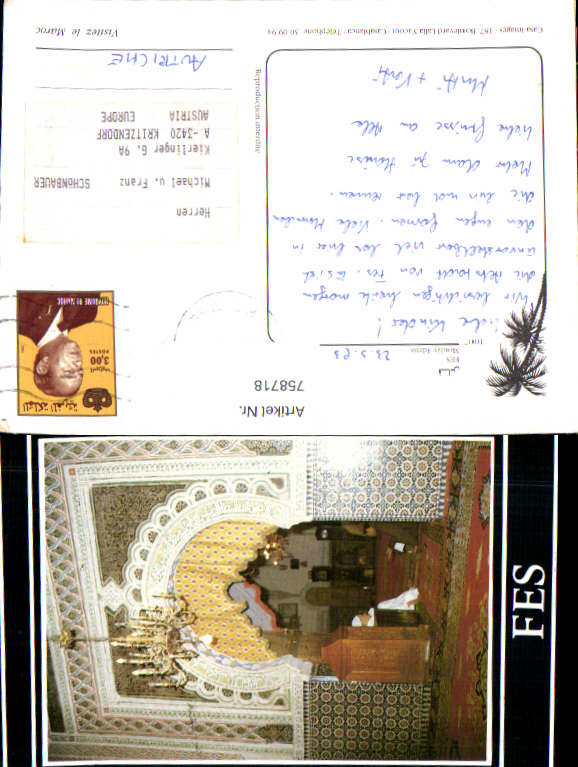 Visitez le Maroc
Casa-images - 187, Boulevard Lalla Yacout - Casablanca - Téléphone 30 09 94
AUTRICHE
Reproduction interdite
Herren
Michael u. Franz SCHÖNBAUER
Kierlinger G. 9A
A -3420 KRITZENDORF
AUSTRIA EUROPE
ROYAUME DU MAROC
3,00
POSTES
المملكة المغربية
FES
فاس
23.3.93
Liebe Kinder!
Wir besichtigen heute morgen
die Altstadt von Fes. Es ist
unvorstellbar viel los hier in
den engen Gassen. Viele
die tun und los rennen.
Mehr dann zu Hause
Liebe Grüsse an Alle
Artikel Nr.
758718
FES